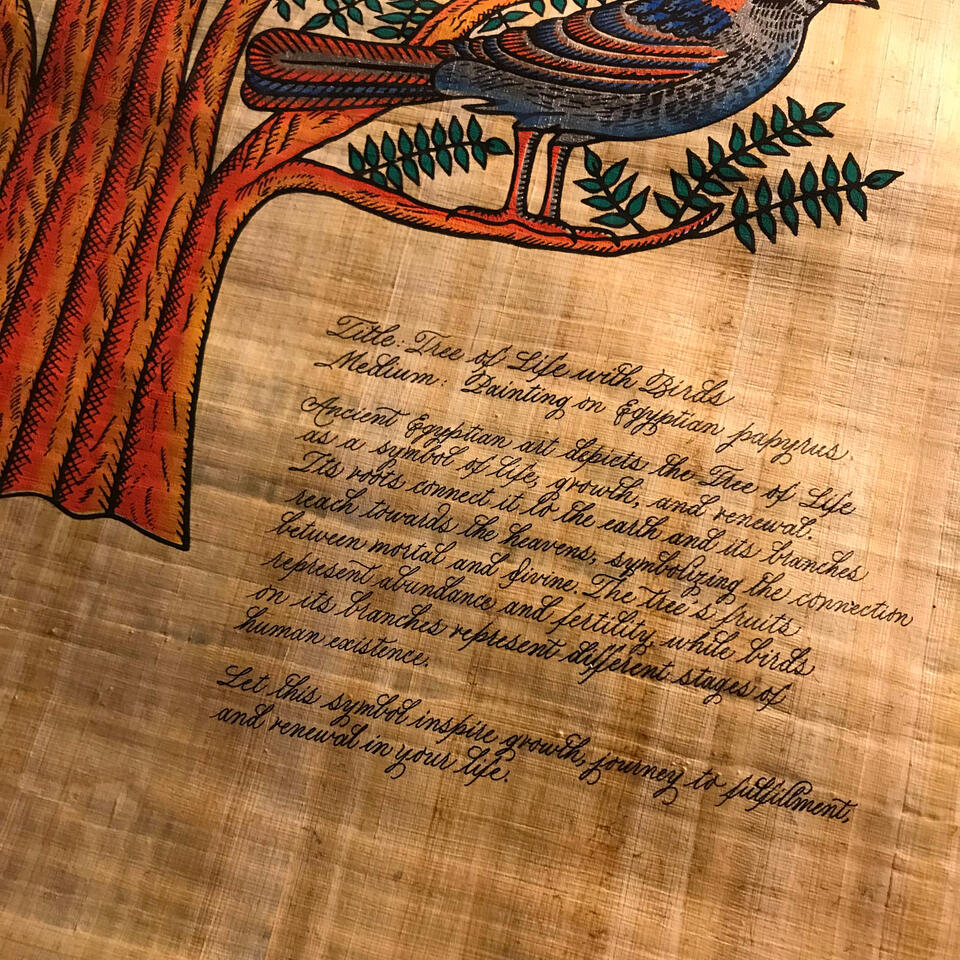 Title: Tree of Life with Birds
Medium: Painting on Egyptian papyrus.
Ancient Egyptian art depicts the Tree of Life
as a symbol of life, growth, and renewal.
Its roots connect it to the earth and its branches
reach towards the heavens, symbolizing the connection
between mortal and divine. The tree's fruits
represent abundance and fertility, while birds
on its branches represent different stages of
human existence.
Let this symbol inspire growth, journey to fulfillment,
and renewal in your life.